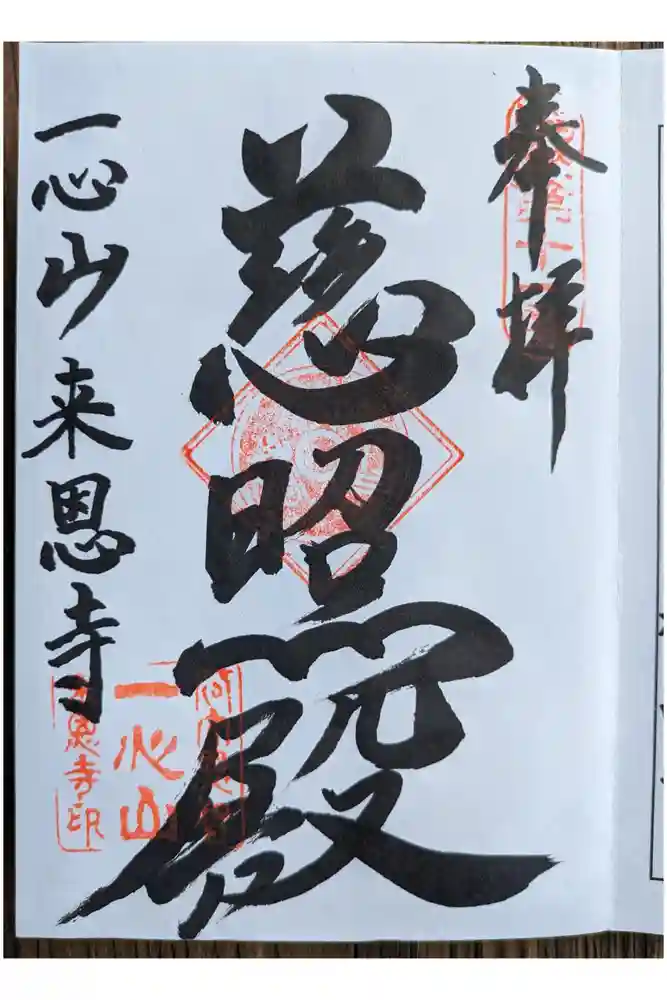 奉拝
慈照殿
一心山来恩寺
一心山
恩寺印